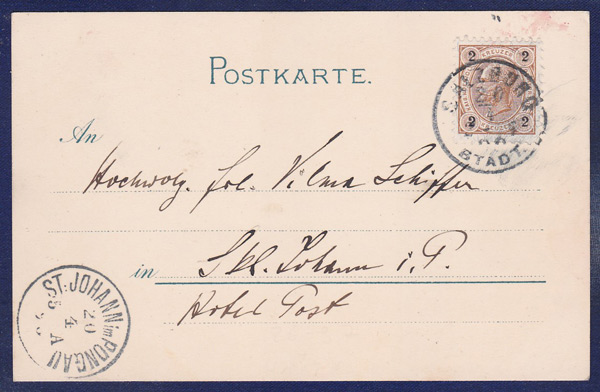 POSTKARTE.
2 KREUZER 2
2 KREUZER 2
SALZBURG
20
4
STADT.
An
Hochwolg. frl. Vilma Schiffer
in Skt. Johann i. P.
Hotel Post
ST. JOHANN im PONGAU
20
4
A